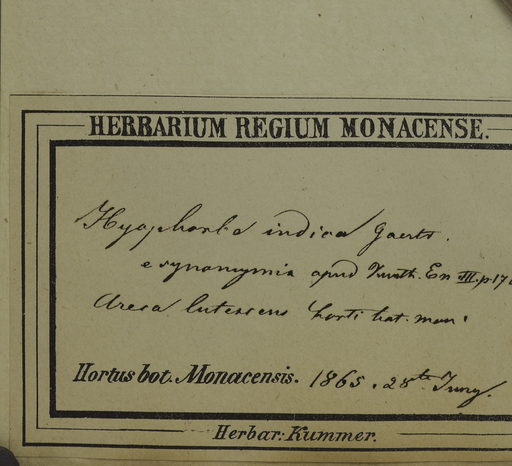 HERBARIUM REGIUM MONACENSE.
Hyophorbe indica Gaertn.
e synonymia apud Kunth. En III. p 17
Areca lutescens horti bot. mon.
Hortus bot. Monacensis. 1865. 28ten Juny.
Herbar. Kummer.